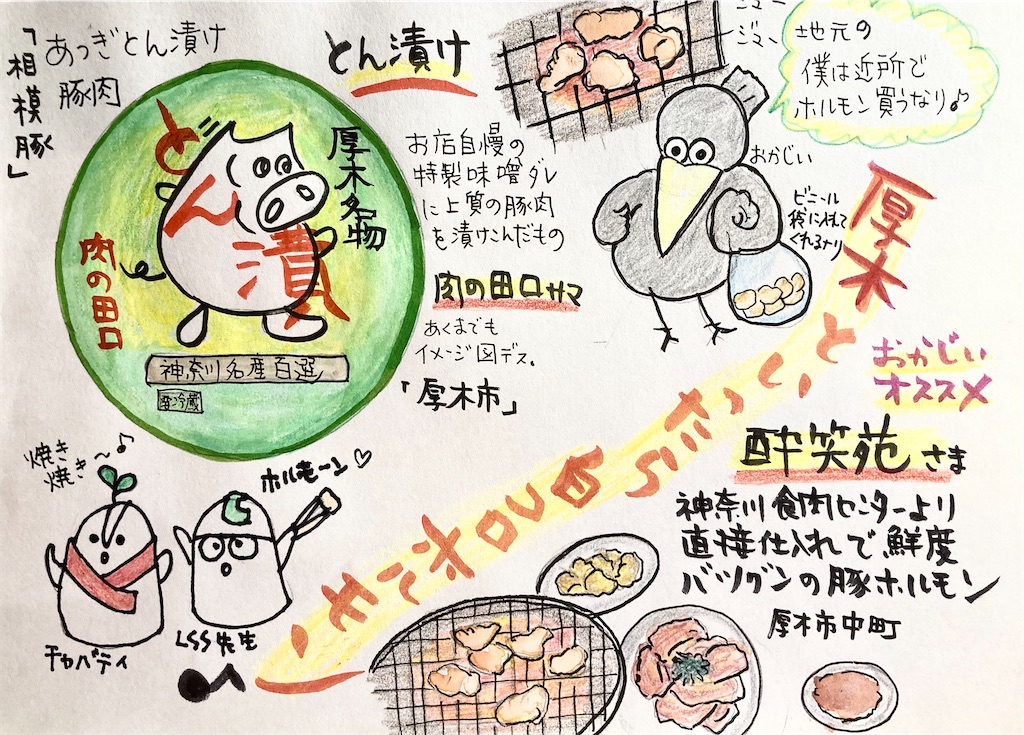 「相模豚」
あつぎとん漬け
豚肉
とん漬
厚木名物
肉の田口
神奈川名産百選
要冷蔵
とん漬け
お店自慢の
特製味噌ダレ
に上質の豚肉
を漬けこんだもの
肉の田口サマ
あくまでも
イメージ図デス。
「厚木市」
ジマ、
ジマ、
地元の
僕は近所で
ホルモン買うなり♪
おかじい
ビニール
袋に入れて
くれるナリ
厚木
といったら白コロホルモン
おかじい
オススメ
酔笑苑さま
神奈川食肉センターより
直接仕入れで鮮度
バツグンの豚ホルモン
厚木市中町
焼き
焼き〜♪
ホルモーン♡
チャバティ
LSS先生